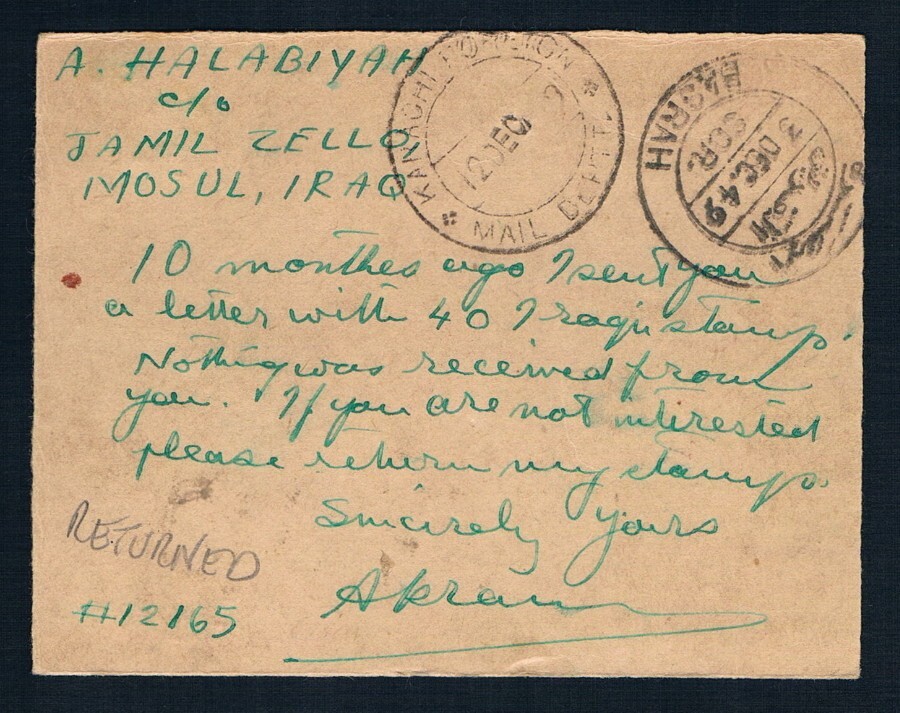 A. HALABIYAH
c/o
JAMIL ZELLO
MOSUL, IRAQ
KARACHI FOREIGN
12 DEC
MAIL DEPTT.
BASRAH
SOR.
3 DEC. 49
10 monthes ago I sent you
a letter with 40 Iraqi stamps.
Nothing was received from
you. If you are not interested
please return my stamps.
Sincirely yours
Akram
RETURNED
#12165